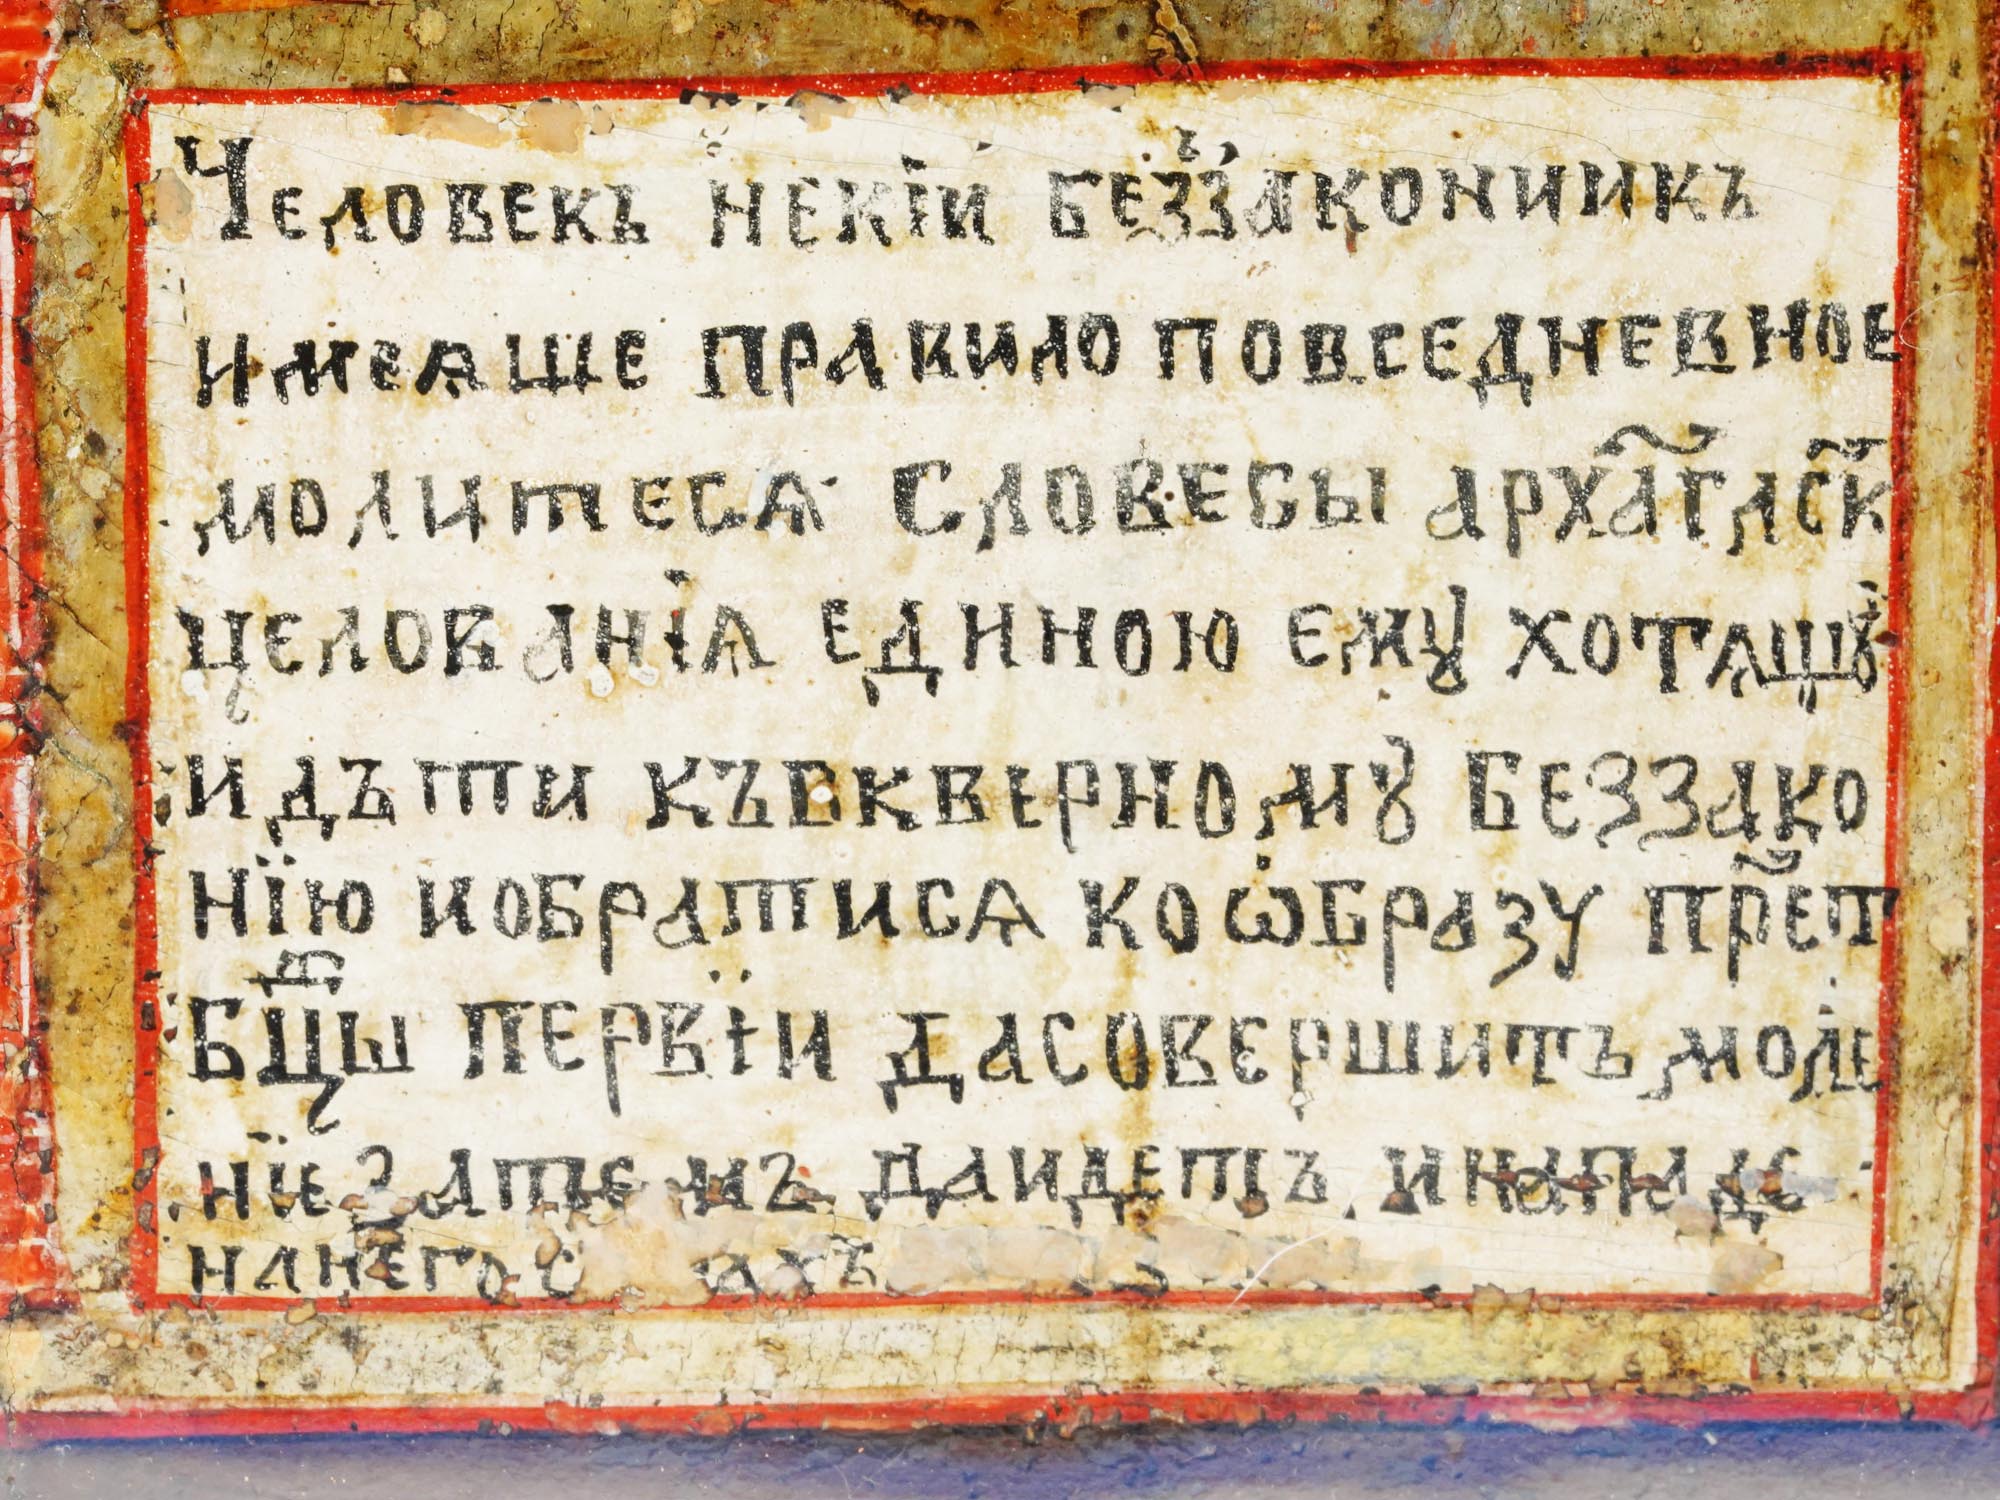 Человекъ некїи беззаконникъ
имеѧше правило повседневное
молитесѧ словесы арха҃гл҃ск
целованїѧ единою ему хотѧщꙋ
идъти къвкверномꙋ беззако
нїю иобратисѧ коѡбразу пр҃ет
бцⷣы первїи дасовершитъ моле
нїе затемъ даидетъ
нанего